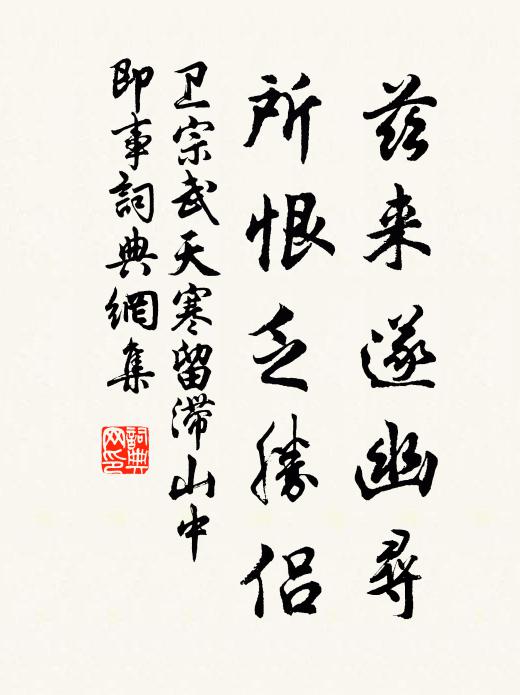 茲来遂幽尋
所恨乏勝侣
卫宗武天寒留滯山中
即事詞典網集
詞典
网印